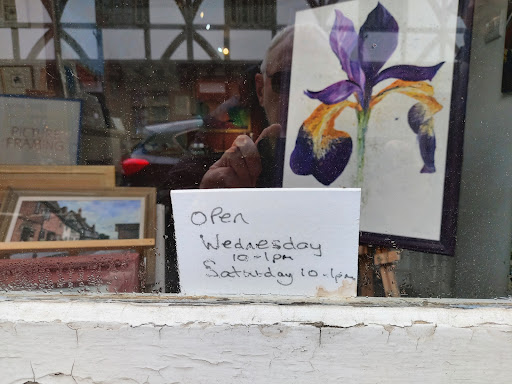 PICTURE
FRAMING
Open
Wednesday
10-1pm
Saturday 10-1pm